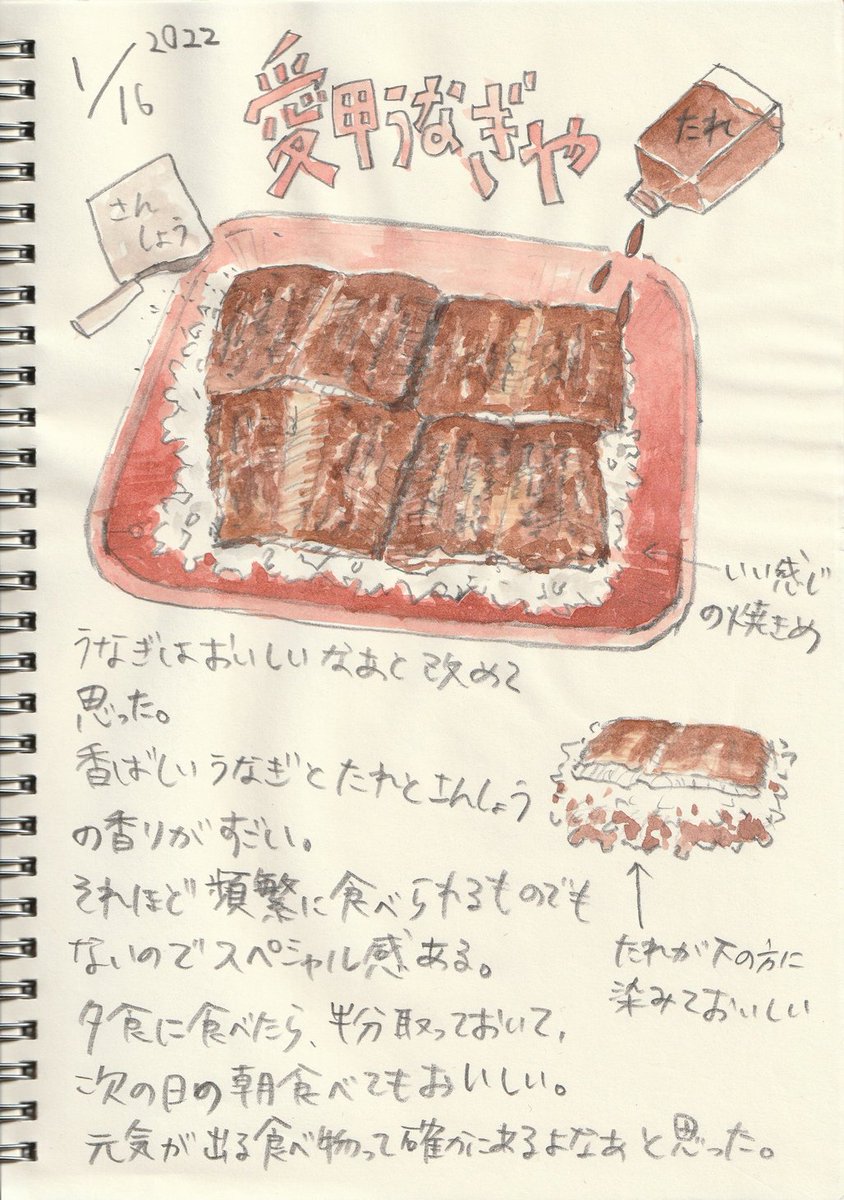 2022
1/16
愛甲うなぎや
たれ
さん
しょう
いい感じ
の焼きめ
うなぎはおいしいなあと改めて
思った。
香ばしいうなぎとたれとさんしょう
の香りがすごい。
それほど頻繁に食べられるものでも
ないのでスペシャル感ある。
夕食に食べたら、半分取っておいて、
次の日の朝食べてもおいしい。
元気が出る食べ物って確かにあるよなあと思った。
たれが下の方に
染みておいしい